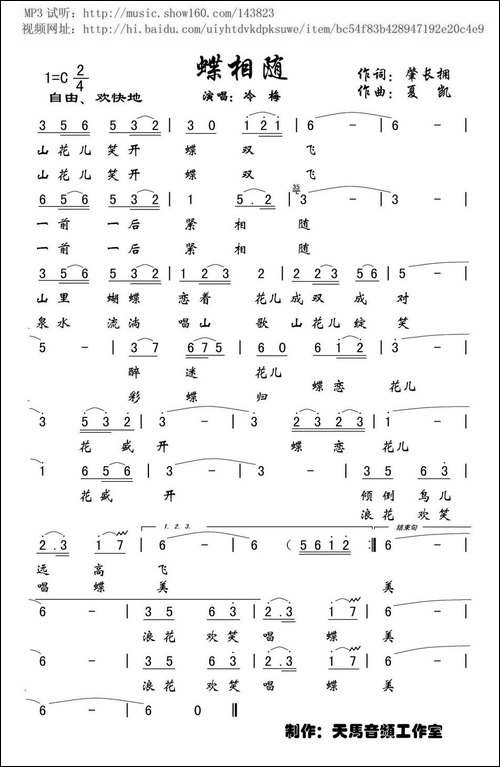 MP3 试听：http://music.show160.com/143823
视频网址：http://hi.baidu.com/uiyhtdvkdpksuwe/item/bc54f83b428947192e20c4e9
蝶相随
1=C 2/4
作词：肇长拥
自由、欢快地 演唱：冷梅 作曲：夏凯
3 5 6 5 3 2 | 3 0 1 2 1 | 6 - | 6 - |
山 花 儿 笑 开 蝶 双 飞
山 花 儿 笑 开 蝶 双 飞
6 5 6 5 3 2 | 1 5 . 2 | 3 - | 3 - |
一 前 一 后 紧 相 随
一 前 一 后 紧 相 随
3 5 6 5 3 2 | 1 2 3 2 | 3 5 3 2 3 5 6 | 5 - |
山 里 蝴 蝶 恋 着 花 儿 成 双 成 对
泉 水 流 淌 唱 山 歌 山 花 儿 绽 笑
5 - | 3 7 6 7 5 | 6 0 6 1 2 | 3 - |
醉 迷 花 儿 蝶 恋 花 儿
彩 蝶 归
3 5 2 3 2 | 3 - | 3 - | 2 3 2 3 2 |
花 盛 开 蝶 恋 花 儿
1 6 5 6 | 3 - | 3 - | 3 5 6 3 |
花 盛 开 倾 倒 鸟 儿
浪 花 欢 笑
1. 2. 3. 结束句
2 . 3 1 7 | 6 - | 6 ( 5 6 1 2 :‖ 6 - |
远 高 飞
唱 蝶 美 美
6 - | 3 5 6 3 | 2 . 3 1 7 | 6 - |
浪 花 欢 笑 唱 蝶 美
6 - | 3 5 6 3 | 2 . 3 1 7 | 6 - |
浪 花 欢 笑 唱 蝶 美
6 - | 6 0 ‖
制作：天馬音頻工作室